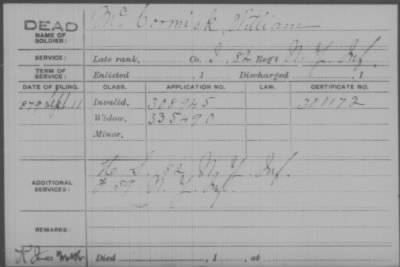 DEAD
NAME OF SOLDIER: McCormick, William
SERVICE: Late rank, Co. I, 82 Reg't N.Y. Inf.
TERM OF SERVICE: Enlisted , 1 Discharged , 1
DATE OF FILING. CLASS. APPLICATION NO. LAW. CERTIFICATE NO.
Invalid, 308945 201172
Widow, 335490
Minor,
ADDITIONAL SERVICES: 82 N.Y. Inf.
& 59 N.Y. Inf.
REMARKS:
Died , 1 , at